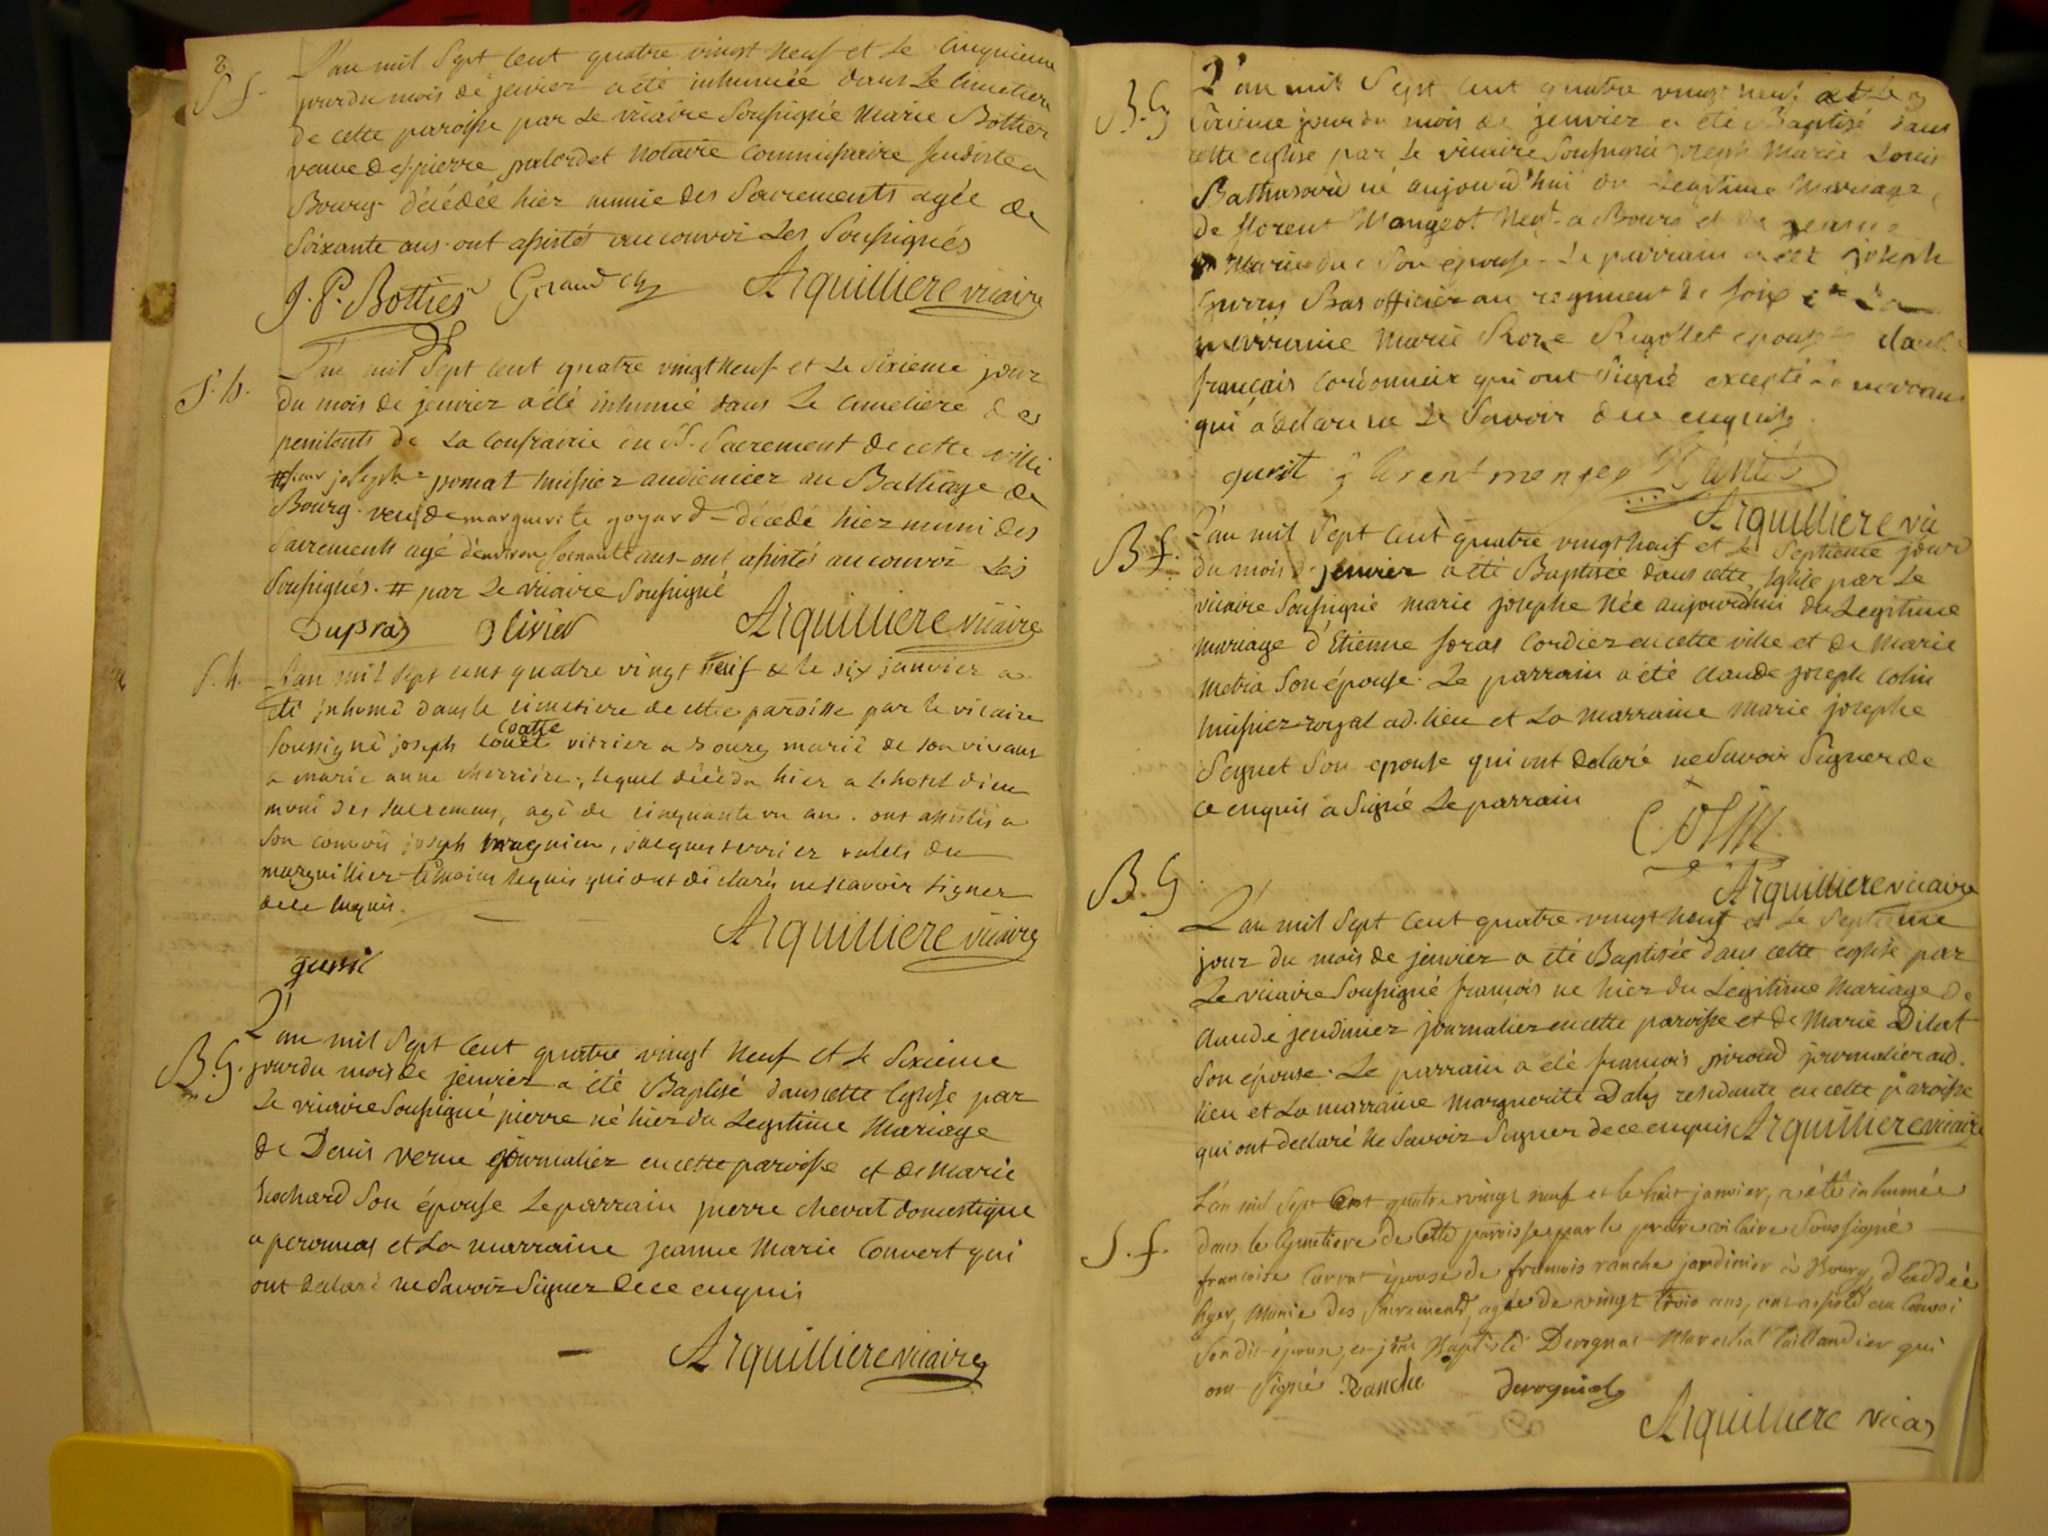 2
S f.
L'an mil Sept cent quatre vingt neuf et Le Cinquieme
jour du mois de jenvier a été inhumée dans Le Cimetiere
de cette paroisse par Le vicaire Soussigné Marie Bottier
veuve de pierre notaire commissaire
Bourg décédée hier munie des Sacrements agée de
Soixante ans ont assistés au convoi Les Soussignés
J. P. Bottier Geraud Arquilliere vicaire
S. h.
L'an mil Sept cent quatre vingt neuf et Le Sixieme jour
du mois de jenvier a été inhumé dans Le Cimetiere des
penitents de La Confrairie du St. Sacrement de cette ville
# Sieur joseph ponat huissier audiencier au Balliage de
Bourg veuf de marguerite goyard décedé hier muni des
Sacrements agé d'environ soixante ans ont assistés au convoi Les
Soussignés. # par Le vicaire Soussigné
Dupras Olivier Arquilliere vicaire
S. h.
L'an mil sept cent quatre vingt neuf & le six janvier a
été inhumé dans le cimetiere de cette paroisse par le vicaire
soussigné joseph vitrier a Bourg marié de son vivant
a marie anne lequel décéda hier a l'hotel dieu
muni des sacremens, agé de cinquante un ans. ont assistés a
son convoi joseph jacques valets du
marguillier temoins requis qui ont déclarés ne scavoir signer
de ce enquis.
Arquilliere vicaire
gurit
B. G.
L'an mil Sept Cent quatre vingt Neuf et Le Sixieme
jour du mois de jenvier a été Baptisé dans cette Eglise par
Le vicaire Soussigné pierre né hier du Legitime Mariage
de Denis verne journalier en cette paroisse et de Marie
Son épouse Le parrain pierre chevat domestique
a peronnas et La marraine jeanne Marie Convert qui
ont declaré ne Savoir Signer de ce enquis
Arquilliere vicaire
B. G
L'an mil Sept Cent quatre vingt neuf et Le
Sixieme jour du mois de jenvier a été Baptisé dans
cette eglise par Le vicaire Soussigné joseph Marie Louis
né aujourd'hui du Legitime Mariage
de florent Mangeot Negt a Bourg et de jeanne
Son épouse Le parrain a été joseph
Bas officier au regiment de foix et La
marraine Marie Roze Rigollet epouse
français Cordonnier qui ont Signé excepté La marraine
qui a declaré ne Le Savoir de ce enquis
gurit florent
Arquilliere vic
B f.
L'an mil Sept Cent quatre vingt neuf et Le Septieme jour
du mois de jenvier a été Baptisée dans cette Eglise par Le
vicaire Soussigné marie josephe Née aujourd'hui du Legitime
mariage d'Etienne foras Cordier en cette ville et de Marie
Metra Son épouse. Le parrain a été claude joseph Colin
huissier royal ad. lieu et La Marraine Marie josephe
Seynet Son epouse qui ont declaré ne Savoir Signer de
ce enquis a Signé Le parrain
Colin
Arquilliere vicaire
B. G
L'an mil Sept Cent quatre vingt neuf et Le Septieme
jour du mois de jenvier a été Baptisée dans cette eglise par
Le vicaire Soussigné francois né hier du Legitime Mariage de
Claude jendinier journalier en cette paroisse et de Marie Dilat
Son épouse. Le parrain a été francois piroud journalier aud.
lieu et La marraine Marguerite residante en cette paroisse
qui ont declaré Ne Savoir Signer de ce enquis Arquilliere vicaire
S. f.
L'an mil Sept Cent quatre vingt neuf et le huit janvier, a été inhumée
dans le Cymetiere de Cette parroisse par le pretre vicaire Soussigné
francoise Carrat épouse de francois ranche jardinier à Bourg, décédée
hyer, Munie des Sacrements, agée de vingt trois ans, ont assisté au Convoi
Son dit époux, et jean Baptiste Devognas Marechal taillandier qui
ont Signé Ranche Devognas
Arquilliere vicai